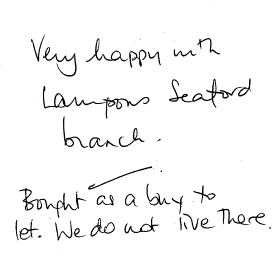 Very happy with
Lampons Seaford
branch.
Bought as a buy to
let. We do not live there.